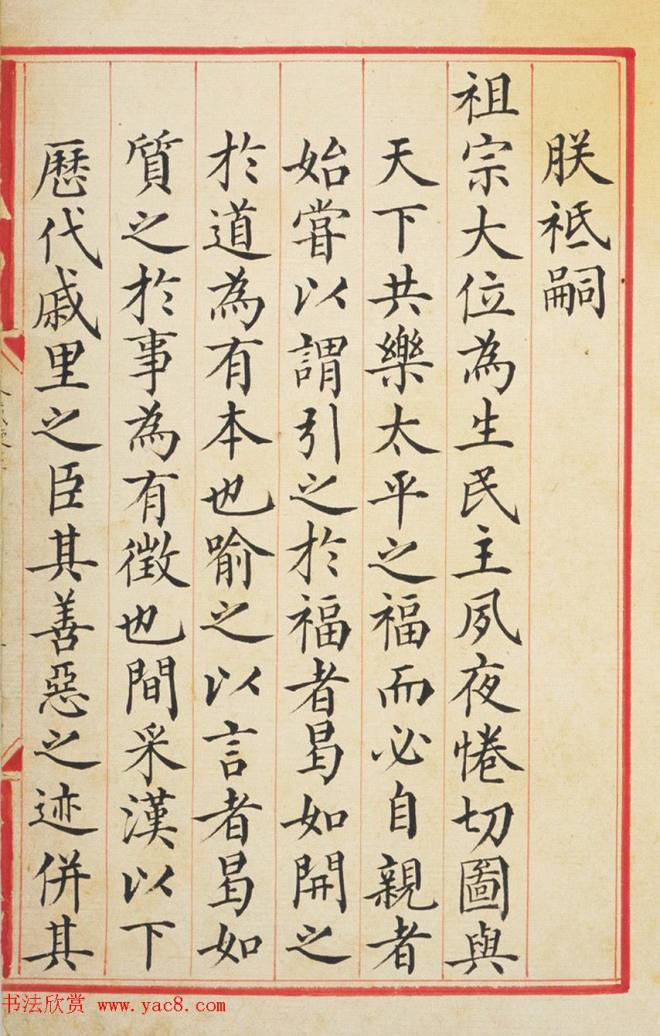 朕祗嗣
祖宗大位為生民主夙夜惓切圖與
天下共樂太平之福而必自親者
始嘗以謂引之於福者曷如開之
於道為有本也喻之以言者曷如
質之於事為有徵也間采漢以下
歷代戚里之臣其善惡之迹併其
书法欣赏 www.yac8.com